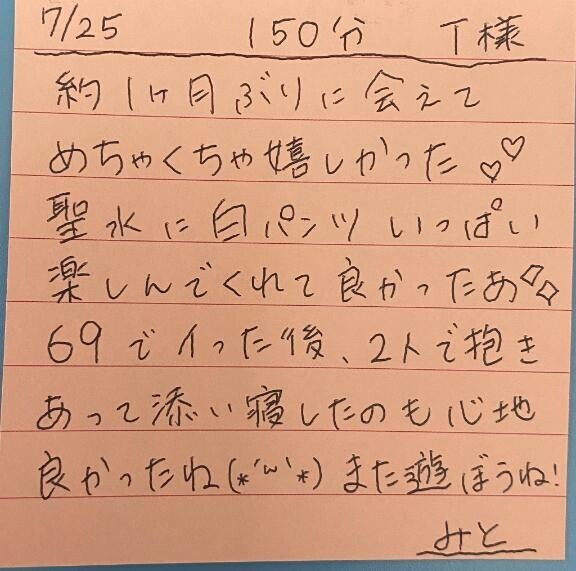 7/25 150分 T様
約1ヶ月ぶりに会えて
めちゃくちゃ嬉しかった♡♡
聖水に白パンツいっぱい
楽しんでくれて良かったあ◇◇
69でイった後、2人で抱き
あって添い寝したのも心地
良かったね(*´ω`*)また遊ぼうね!
みと